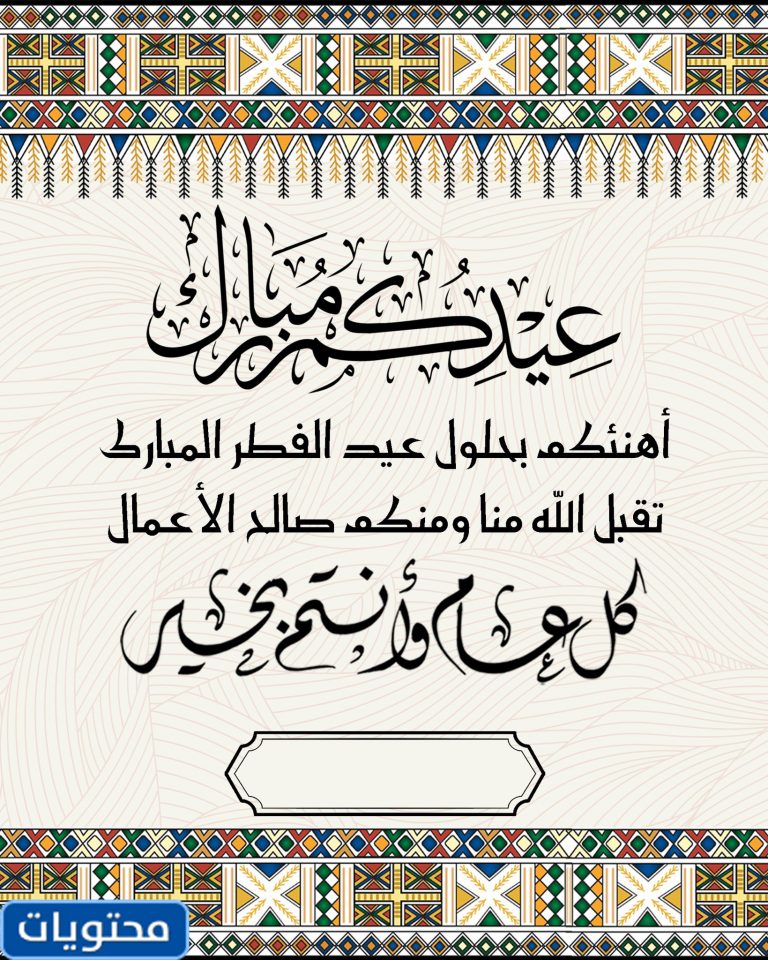 عِيْدِكُم مُبَارك
أهنئكم بحلول عيد الفطر المبارك
تقبل الله منا ومنكم صالح الأعمال
كل عام وأنتم بخير
محتويات